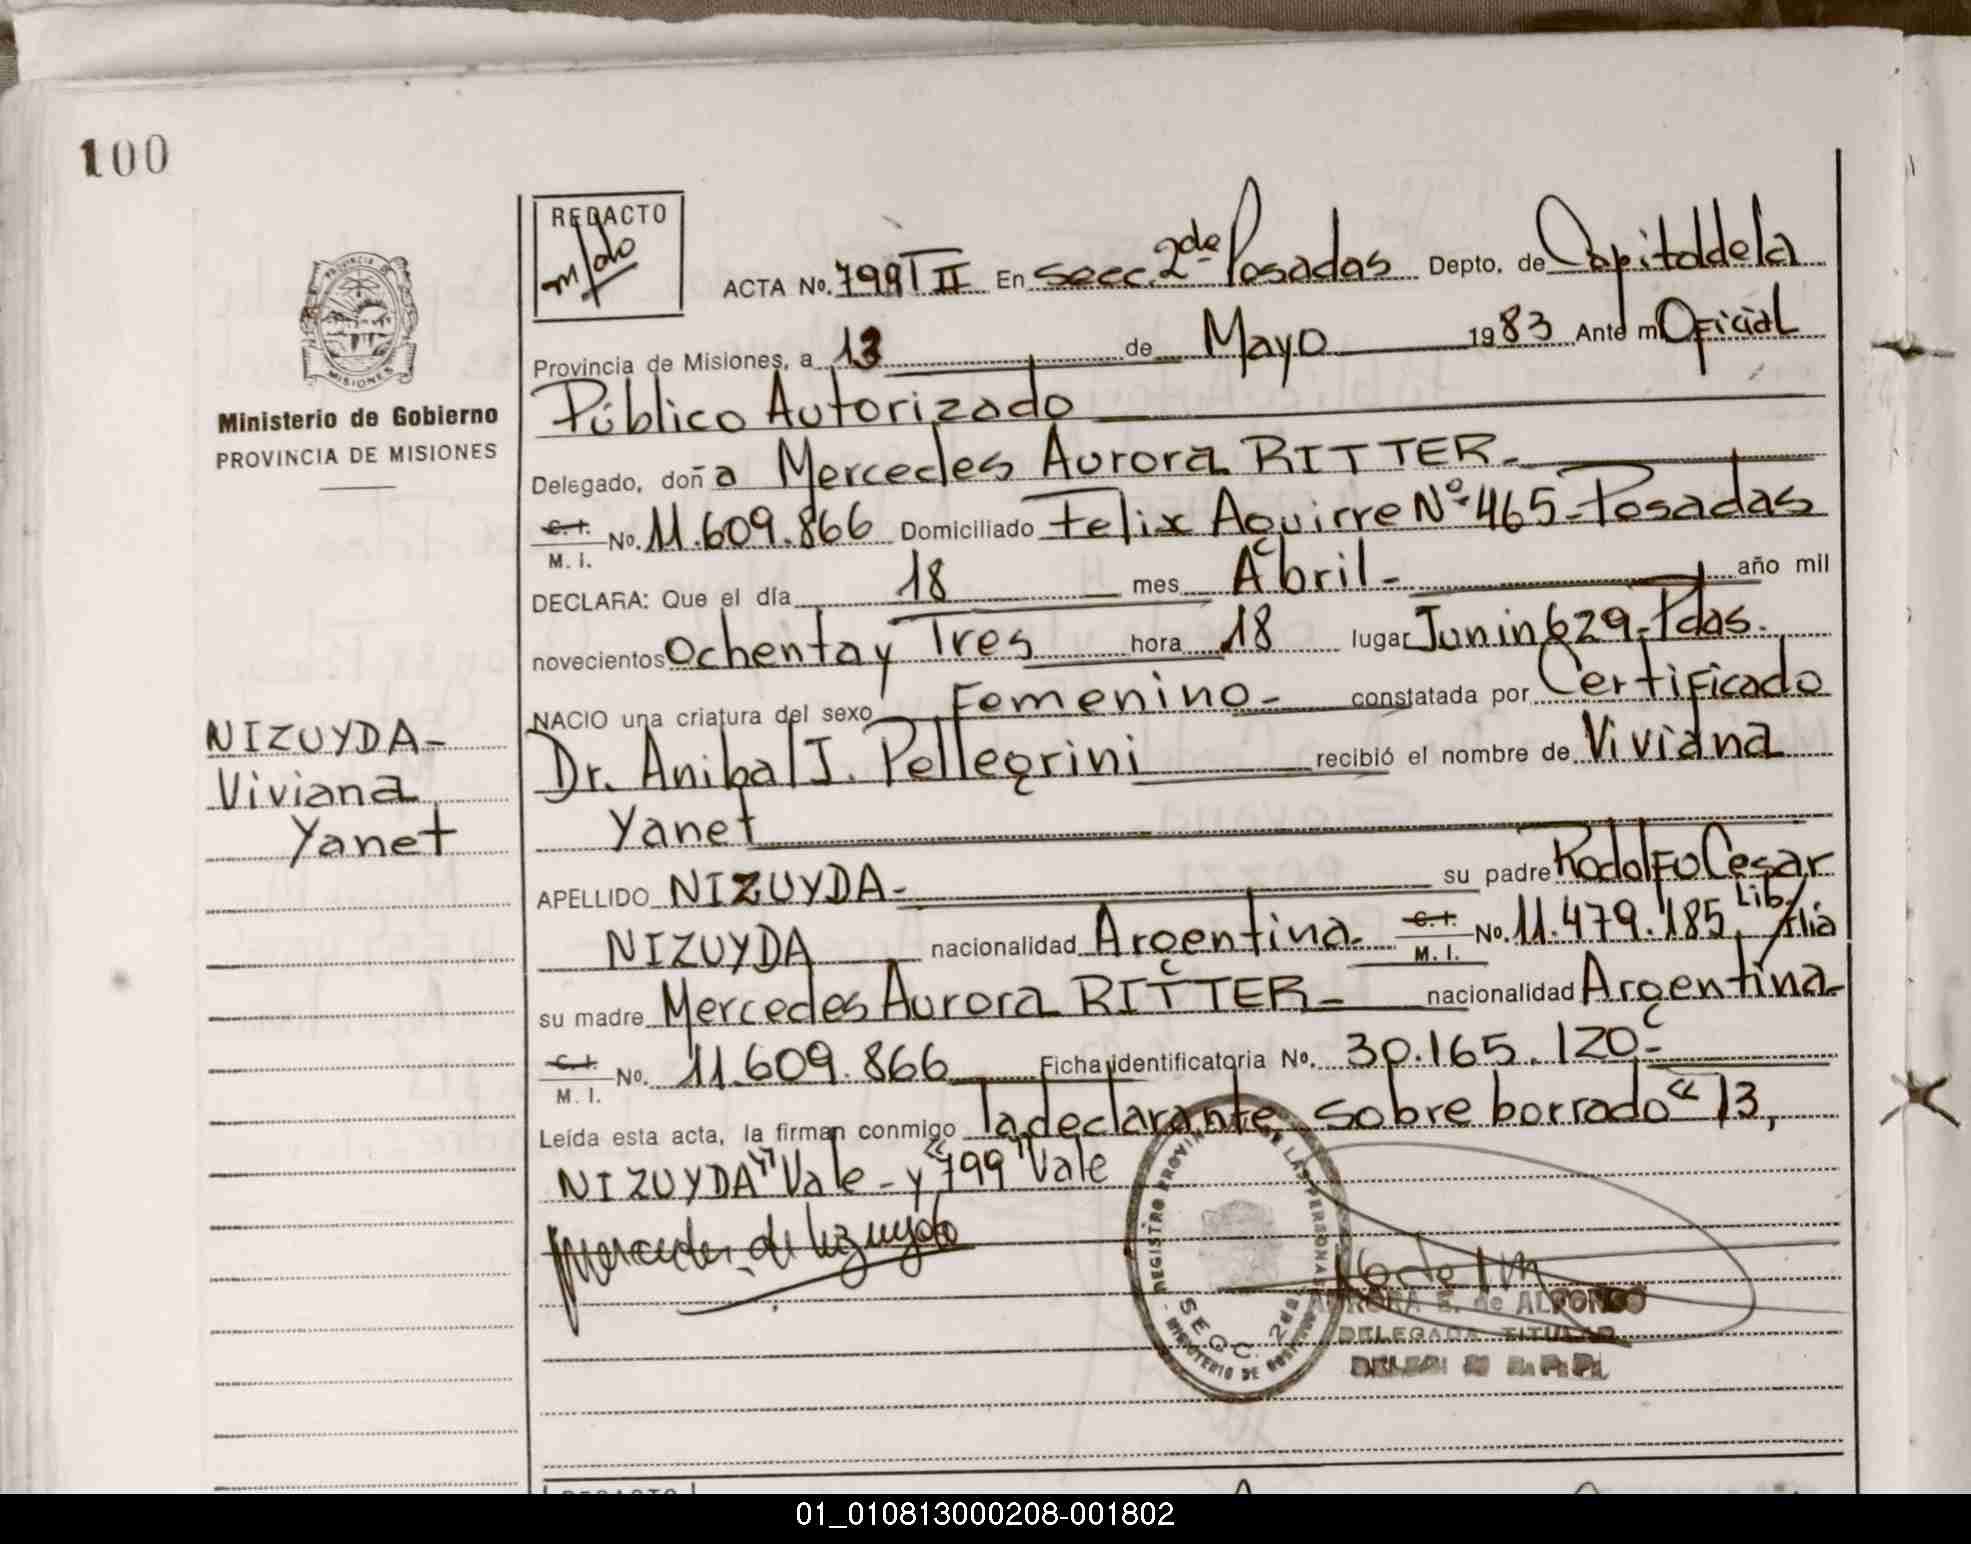 100
REDACTO
m/do
ACTA No. 799 T II En secc. 2da Posadas Depto. de Capital de la
Provincia de Misiones, a 13 de Mayo 1983 Ante mi Oficial
Público Autorizado
Delegado, doña Mercedes Aurora RITTER-
C.I. M.I. No. 11.609.866 Domiciliado Felix Aguirre Nº 465-Posadas
DECLARA: Que el día 18 mes Abril- año mil
novecientos Ochenta y Tres hora 18 lugar Junin 629-Pdas.
NACIO una criatura del sexo Femenino- constatada por Certificado
Dr. Anibal J. Pellegrini recibió el nombre de Viviana
Yanet
APELLIDO NIZUYDA- su padre Rodolfo Cesar
NIZUYDA nacionalidad Argentina- C.I. M.I. No. 11.479.185, Lib/flia
su madre Mercedes Aurora RITTER- nacionalidad Argentina-
C.I. M.I. No. 11.609.866 Ficha identificatoria No. 30.165.120-
Leída esta acta, la firman conmigo la declarante, sobre borrado "13,
NIZUYDA" Vale- y "799" Vale
Mercedes de Nizuyda
Ministerio de Gobierno
PROVINCIA DE MISIONES
NIZUYDA-
Viviana
Yanet
PROVINCIA DE MISIONES
REGISTRO PROVIN DE LAS PERSONAS
SECC. 2da
MINISTERIO DE GOBIERNO
AURORA E. de ALFONSO
DELEGADA TITULAR
01_010813000208-001802